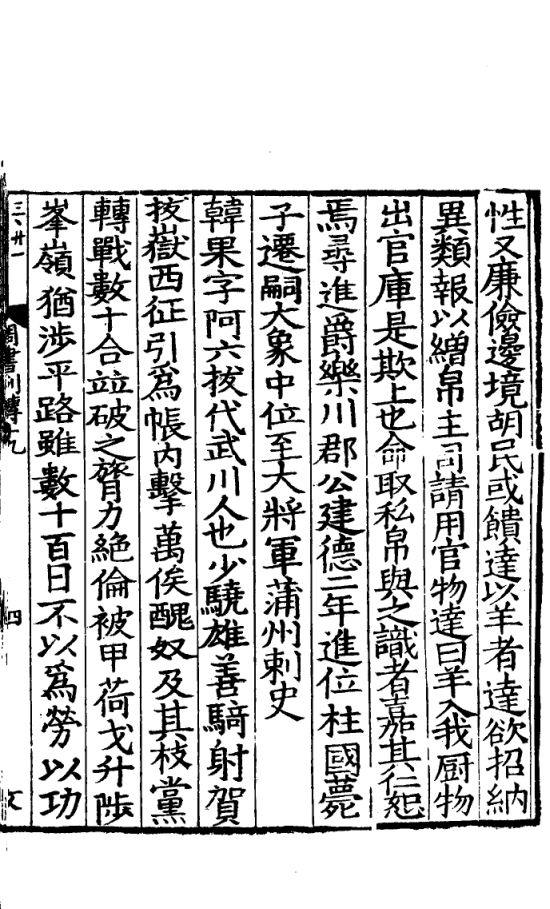 性又廉儉邊境胡民或饋達以羊者達欲招納
異類報以繒帛主司請用官物達曰羊入我厨物
出官庫是欺上也命取私帛與之識者嘉其仁恕
焉尋進爵樂川郡公建德二年進位柱國薨
子遷嗣大象中位至大將軍蒲州刺史
韓果字阿六拔代武川人也少驍雄善騎射賀
拔嶽西征引爲帳內擊萬俟醜奴及其枝黨
轉戰數十合竝破之膂力絕倫被甲荷戈升陟
峯嶺猶涉平路雖數十百日不以爲勞以功
三、廿一
周書列傳九
四
文